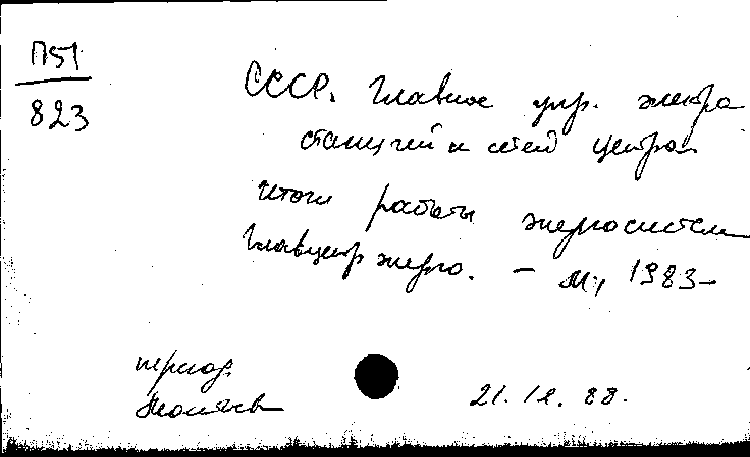 П51
823
СССР. Главное упр. электро
станций и сетей центра.
Итоги работы энергосистем
Главцентрэнерго. — М., 1983-
период.
21. 12. 88.